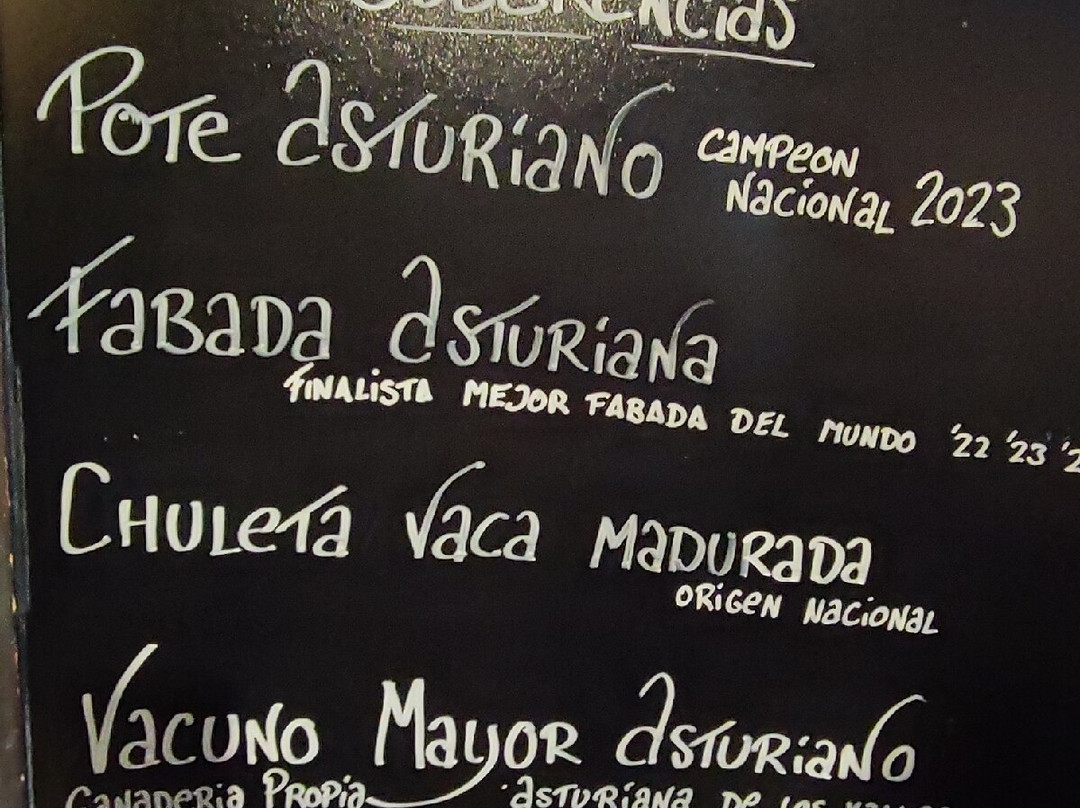 SUGERENCIAS
POTE ASTURIANO
CAMPEON
NACIONAL 2023
FABADA ASTURIANA
FINALISTA MEJOR FABADA DEL MUNDO '22 '23
CHULETA VACA MADURADA
ORIGEN NACIONAL
VACUNO MAYOR ASTURIANO
GANADERIA PROPIA ASTURIANA DE LOS